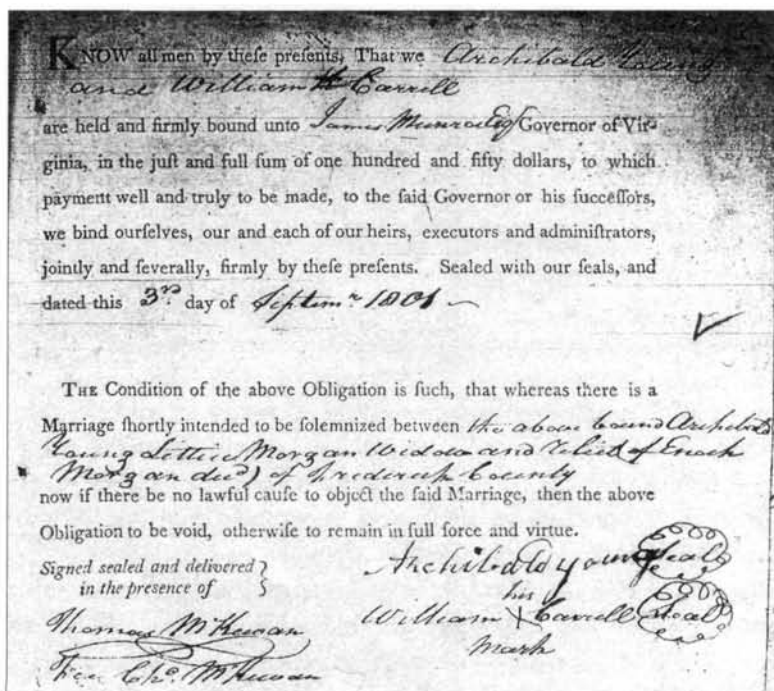 KNOW all men by theſe preſents, That we Archibald Young
and William Carrill
are held and firmly bound unto James Munroe Esqr Governor of Vir-
ginia, in the juſt and full ſum of one hundred and fifty dollars, to which
payment well and truly to be made, to the ſaid Governor or his ſucceſſors,
we bind ourſelves, our and each of our heirs, executors and adminiſtrators,
jointly and ſeverally, firmly by theſe preſents. Sealed with our ſeals, and
dated this 3rd day of Septemr 1801
THE Condition of the above Obligation is ſuch, that whereas there is a
Marriage ſhortly intended to be ſolemnized between the above bound Archibald
Young Lettice Morgan Widow and Relict of Enoch
Morgan decd) of Frederick County
now if there be no lawful cauſe to object the ſaid Marriage, then the above
Obligation to be void, otherwiſe to remain in full force and virtue.
Signed sealed and delivered }
in the presence of
Archibald young Seal
his
William X Carrill Seal
mark
Thomas McKewan
Chs. McKewan